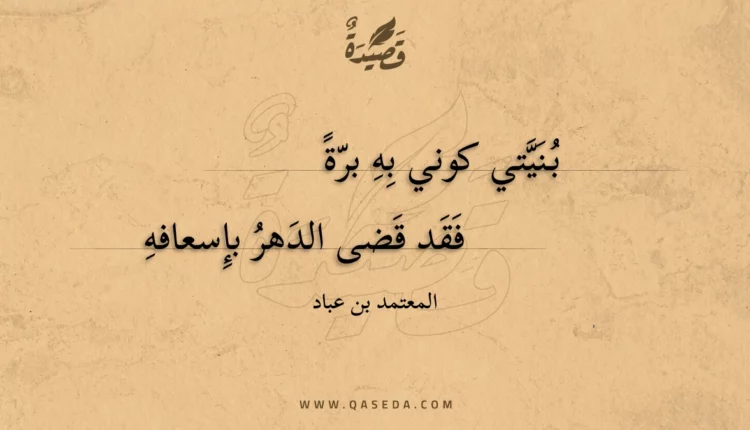 قَصِيدَةٌ
بُنَيَّتي كوني بِهِ برّةً
فَقَد قَضى الدَهرُ بإِسعافهِ
المعتمد بن عباد
WWW.QASEDA.COM